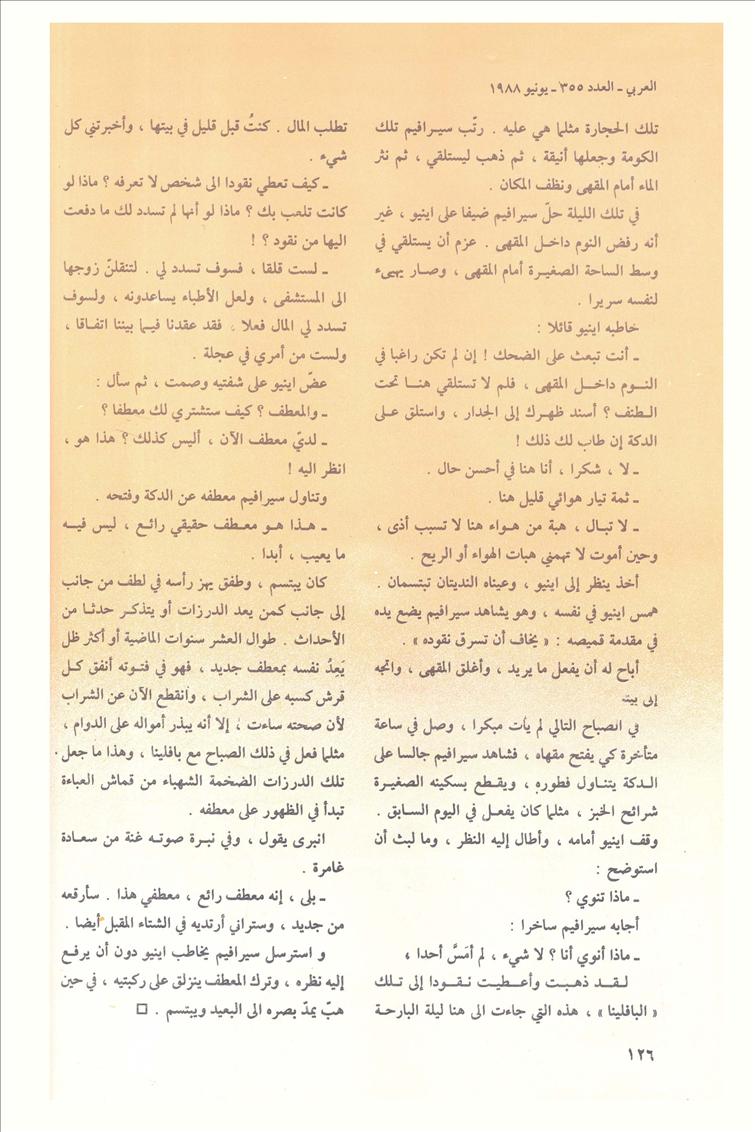 العربي - العدد ٣٥٥ - يونيو ١٩٨٨
تلك الحجارة مثلما هي عليه . رتّب سيرافيم تلك
الكومة وجعلها أنيقة ، ثم ذهب ليستلقي ، ثم نثر
الماء أمام المقهى ونظف المكان .
في تلك الليلة حلّ سيرافيم ضيفا على اينيو ، غير
أنه رفض النوم داخل المقهى . عزم أن يستلقي في
وسط الساحة الصغيرة أمام المقهى ، وصار يهيىء
لنفسه سريرا .
خاطبه اينيو قائلا :
ـ أنت تبعث على الضحك ! إن لم تكن راغبا في
النوم داخل المقهى ، فلم لا تستلقي هنا تحت
الطنف ؟ أسند ظهرك إلى الجدار ، واستلق على
الدكة إن طاب لك ذلك !
ـ لا ، شكرا ، أنا هنا في أحسن حال .
ـ ثمة تيار هوائي قليل هنا .
ـ لا تبال ، هبة من هواء هنا لا تسبب أذى ،
وحين أموت لا تهمني هبات الهواء أو الريح .
أخذ ينظر إلى اينيو ، وعيناه النديتان تبتسمان .
همس اينيو في نفسه ، وهو يشاهد سيرافيم يضع يده
في مقدمة قميصه : « يخاف أن تسرق نقوده » .
أباح له أن يفعل ما يريد ، وأغلق المقهى ، واتجه
إلى بيته
في الصباح التالي لم يأت مبكرا ، وصل في ساعة
متأخرة كي يفتح مقهاه ، فشاهد سيرافيم جالسا على
الدكة يتناول فطوره ، ويقطع بسكينه الصغيرة
شرائح الخبز ، مثلما كان يفعل في اليوم السابق .
وقف اينيو أمامه ، وأطال إليه النظر ، وما لبث أن
استوضح :
ـ ماذا تنوي ؟
أجابه سيرافيم ساخرا :
ـ ماذا أنوي أنا ؟ لا شيء ، لم أمَسَّ أحدا ،
لقد ذهبت وأعطيت نقودا إلى تلك
« البافلينا » ، هذه التي جاءت الى هنا ليلة البارحة
تطلب المال . كنتُ قبل قليل في بيتها ، وأخبرتني كل
شيء .
ـ كيف تعطي نقودا الى شخص لا تعرفه ؟ ماذا لو
كانت تلعب بك ؟ ماذا لو أنها لم تسدد لك ما دفعت
اليها من نقود ؟ !
ـ لست قلقا ، فسوف تسدد لي . لتنقلنّ زوجها
الى المستشفى ، ولعل الأطباء يساعدونه ، ولسوف
تسدد لي المال فعلا ، فقد عقدنا فيما بيننا اتفاقا ،
ولست من أمري في عجلة .
عضّ اينيو على شفتيه وصمت ، ثم سأل :
ـ والمعطف ؟ كيف ستشتري لك معطفا ؟
ـ لديّ معطف الآن ، أليس كذلك ؟ هذا هو ،
انظر اليه !
وتناول سيرافيم معطفه عن الدكة وفتحه .
ـ هذا هو معطف حقيقي رائع ، ليس فيه
ما يعيب ، أبدا .
كان يبتسم ، وطفق يهز رأسه في لطف من جانب
إلى جانب كمن يعد الدرزات أو يتذكر حدثا من
الأحداث . طوال العشر سنوات الماضية أو أكثر ظل
يَعِدُ نفسه بمعطف جديد ، فهو في فتوته أنفق كل
قرش كسبه على الشراب ، وانقطع الآن عن الشراب
لأن صحته ساءت ، إلا أنه يبذر أمواله على الدوام ،
مثلما فعل في ذلك الصباح مع بافلينا ، وهذا ما جعل
تلك الدرزات الضخمة الشهباء من قماش العباءة
تبدأ في الظهور على معطفه .
انبرى يقول ، وفي نبرة صوته غنة من سعادة
غامرة .
ـ بلى ، إنه معطف رائع ، معطفي هذا . سأرقعه
من جديد ، وستراني أرتديه في الشتاء المقبل أيضا .
و استرسل سيرافيم يخاطب اينيو دون أن يرفع
إليه نظره ، وترك المعطف ينزلق على ركبتيه ، في حين
هبّ يمدّ بصره الى البعيد ويبتسم . □
١٢٦